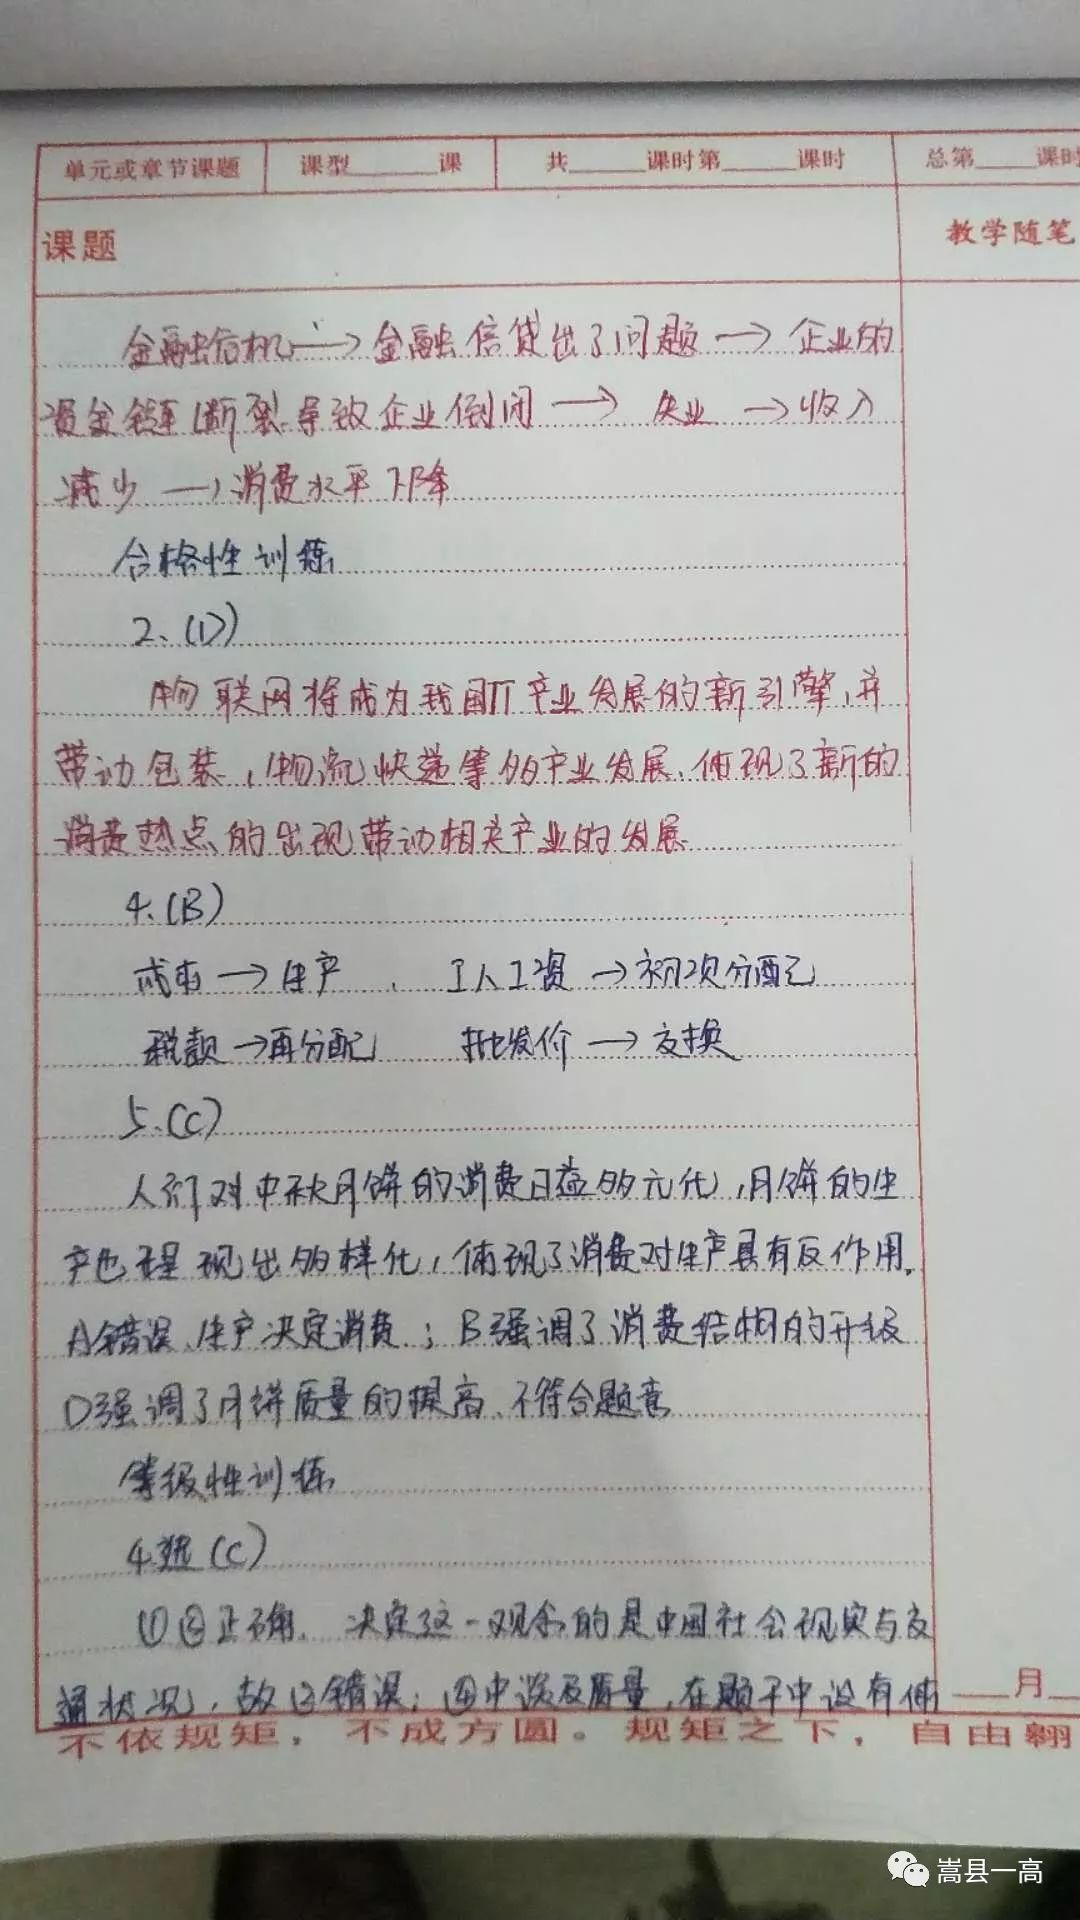 单元或章节课题 课型____课 共____课时第____课时 总第____课时
课题 教学随笔
金融危机→金融信贷出了问题→企业的
资金链断裂导致企业倒闭→失业→收入
减少→消费水平下降
合格性训练
2、(D)
物联网将成为我国IT产业发展的新引擎,并
带动包装、物流快递等的产业发展、体现了新的
消费热点的出现带动相关产业的发展
4、(B)
成本→生产、工人工资→初次分配
税额→再分配 批发价→交换
5、(C)
人们对中秋月饼的消费日益多元化,月饼的生
产也呈现出多样化,体现了消费对生产具有反作用。
A错误、生产决定消费;B强调了消费结构的升级
D强调了月饼质量的提高、不符合题意
等级性训练
4、选(C)
①②正确、决定这一观念的是中国社会现实与交
通状况,故③错误;④中谈及质量,在题干中没有体
____月____
不依规矩,不成方圆。规矩之下,自由翱
嵩县一高